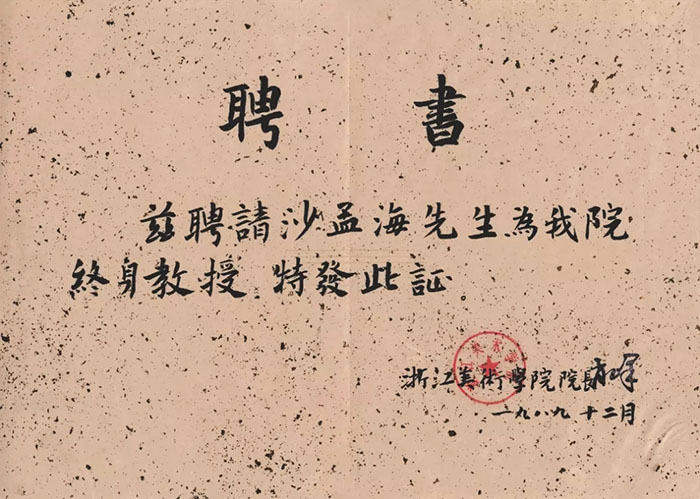 聘書
兹聘請沙孟海先生為我院
終身教授 特發此証
浙江美術學院院長肖峰
一九八九 十二月